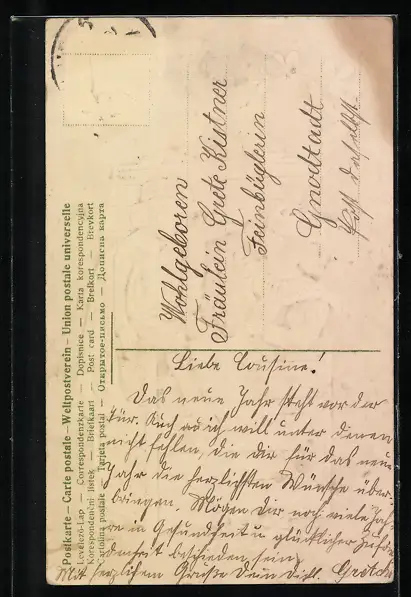 Postkarte — Carte postale — Weltpostverein — Union postale universelle
Levelező-Lap — Correspondenzkarte — Dopisnice — Karta korespondencyjna
Korespondenční lístek — Briefkaart — Post card — Brefkort — Brevkort
Cartolina postale — Tarjeta postal — Открытое письмо — Дописна карта
Wohlgeboren
Fräulein Grete Kistner
Feinbüglerin
Gnodstadt
Post daselbst
Liebe Cousine!
Das neue Jahr steht vor der
Tür. Auch ich will unter denen
nicht fehlen, die dir für das neue
Jahr die herzlichsten Wünsche über-
bringen. Mögen dir noch viele Jah-
re in Gesundheit u. glücklicher Zufrie-
denheit beschieden sein.
Mit herzlichem Gruße Dein